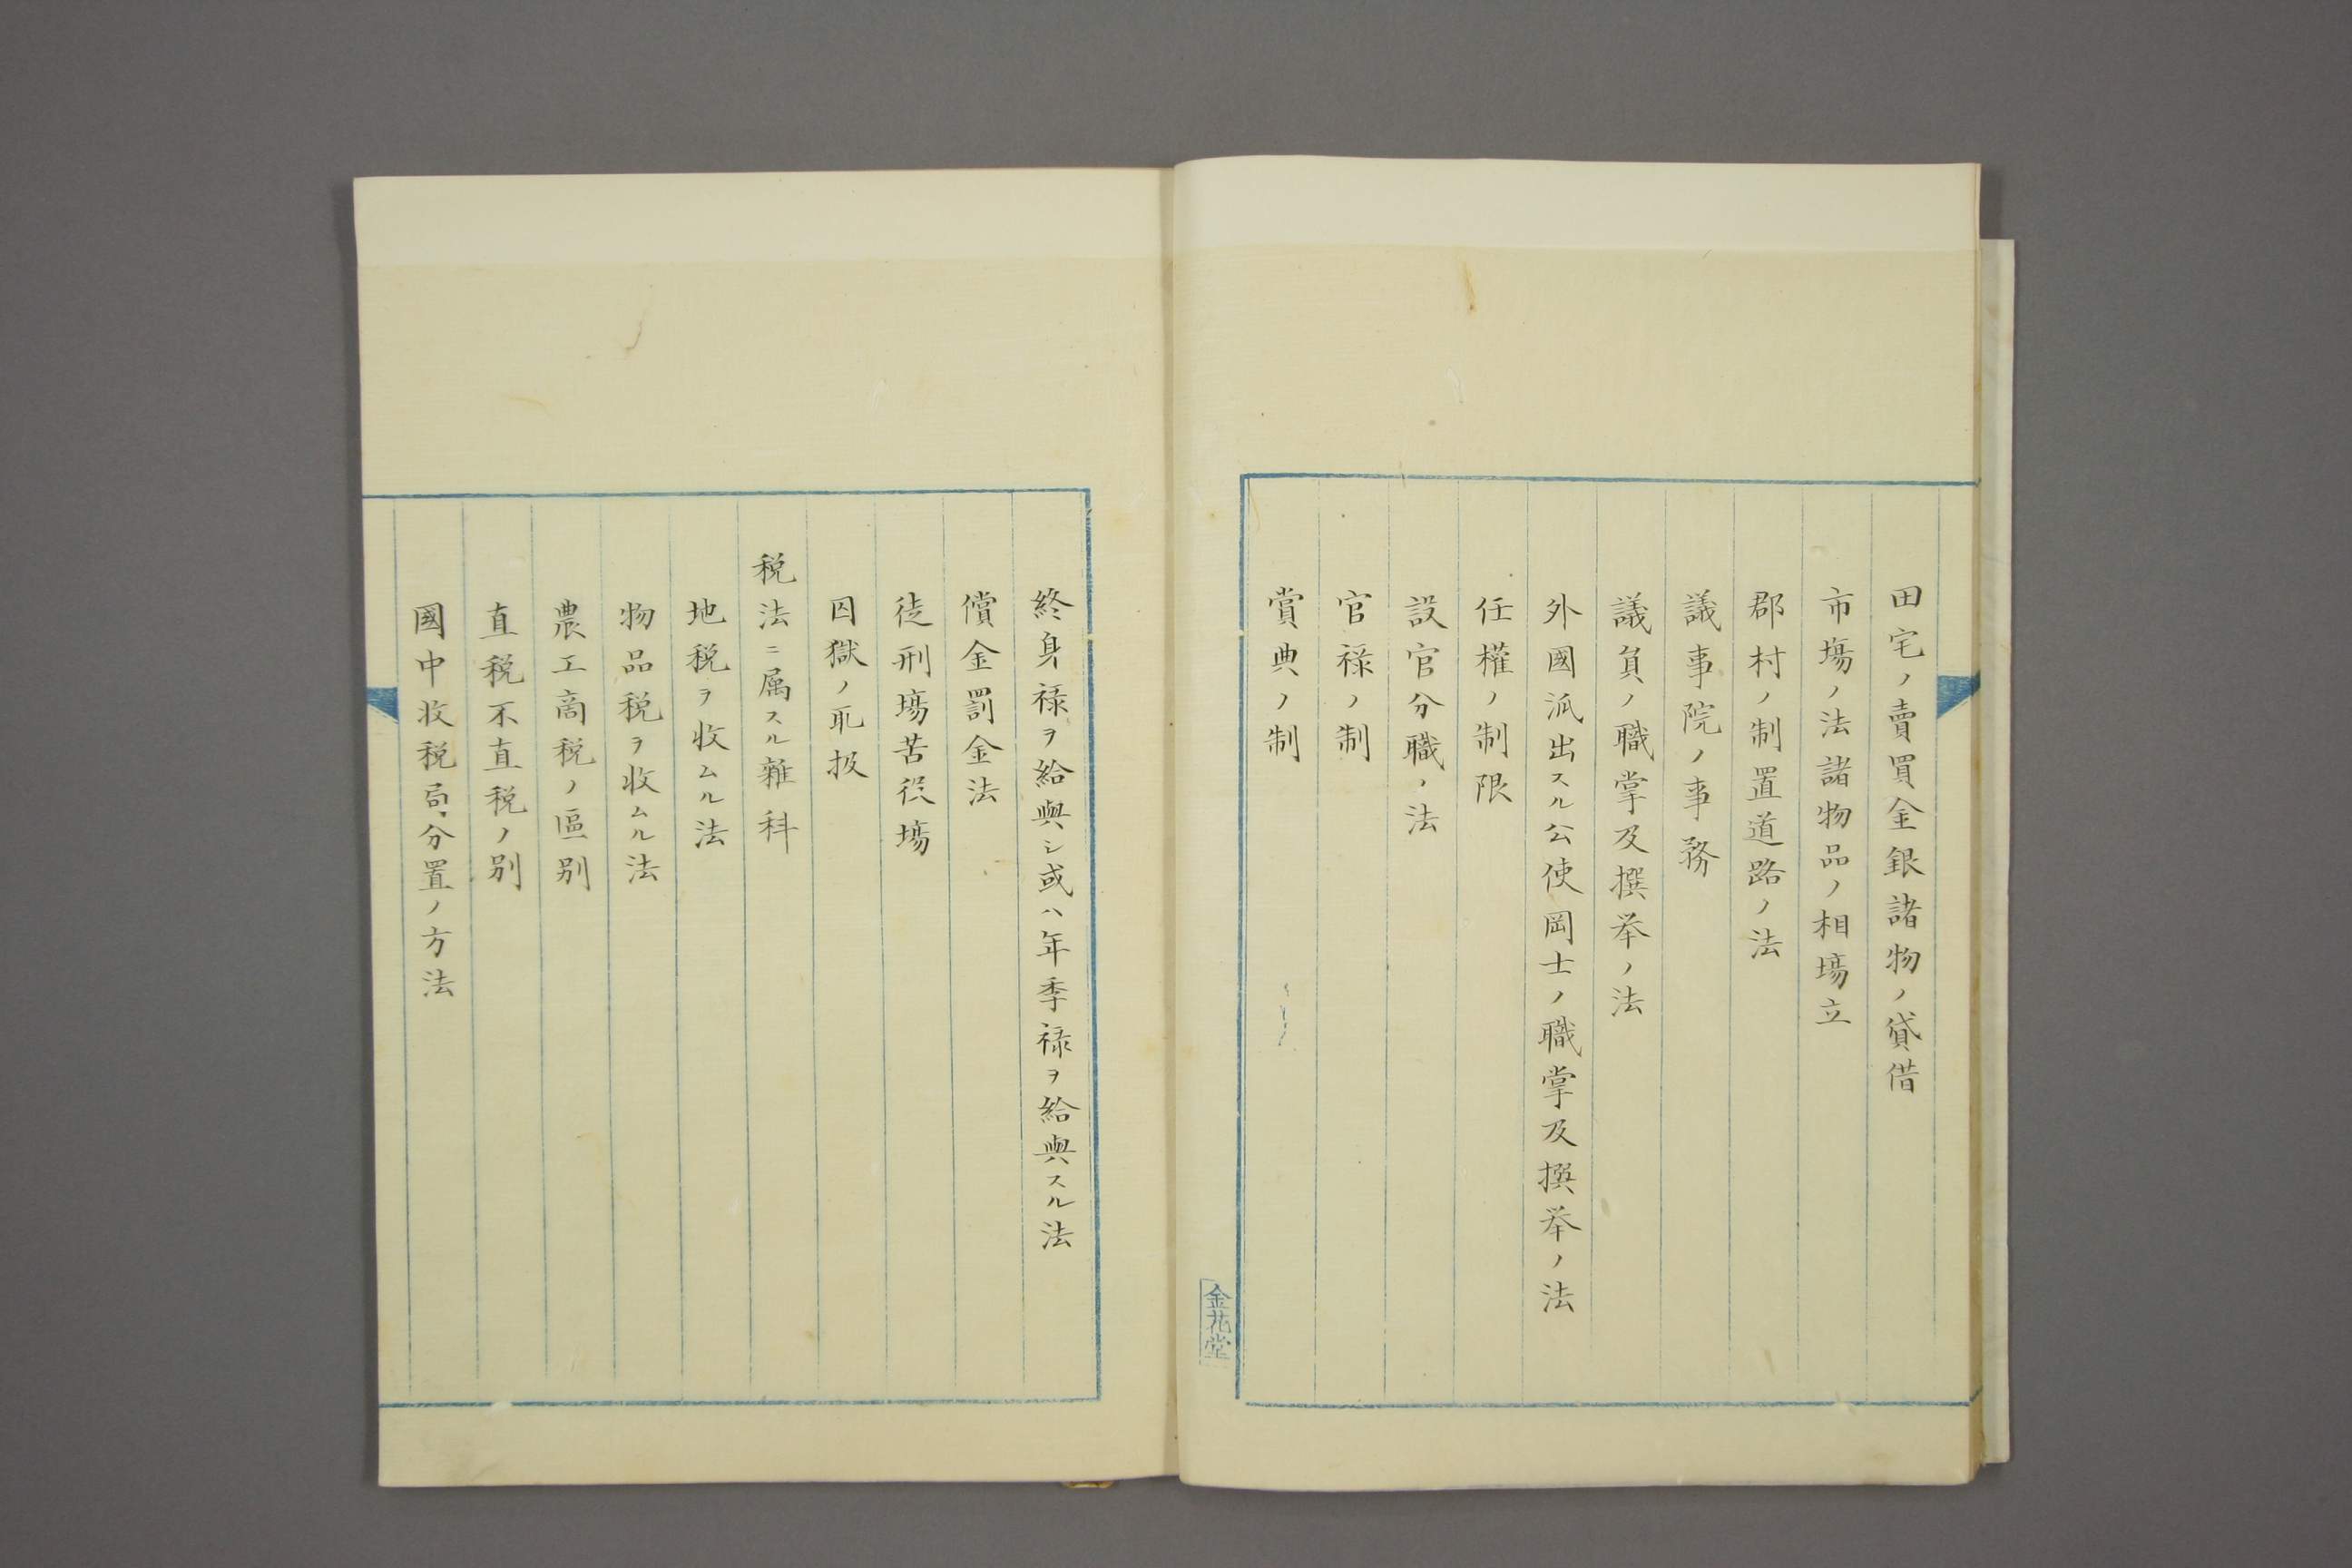 田宅ノ賣買金銀諸物ノ貸借
市塲ノ法諸物品ノ相塲立
郡村ノ制置道路ノ法
議事院ノ事務
議員ノ職掌及撰挙ノ法
外國派出スル公使岡士ノ職掌及撰挙ノ法
任權ノ制限
設官分職ノ法
官禄ノ制
賞典ノ制
金花堂
終身禄ヲ給與シ或ハ年季禄ヲ給與スル法
償金罰金法
徒刑塲苦役塲
囚獄ノ取扱
税法ニ属スル雜科
地税ヲ收ムル法
物品税ヲ收ムル法
農工商税ノ區別
直税不直税ノ別
國中收税局分置ノ方法